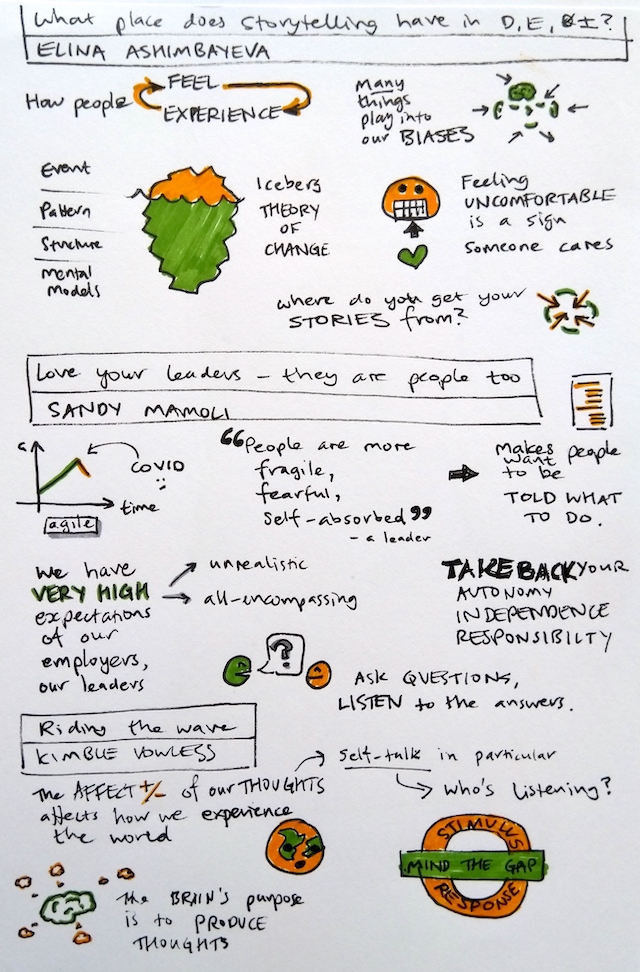 What place does storytelling have in D, E, & I?
ELINA ASHIMBAYEVA
How people
FEEL
EXPERIENCE
Many
things
play into
our BIASES
Event
Pattern
Structure
Mental
Models
Iceberg
THEORY
OF
CHANGE
Feeling
UNCOMFORTABLE
is a sign
Someone cares
Where do you get your
STORIES from?
Love your leaders – they are people too
SANDY MAMOLI
COVID
time
agile
“People are more
fragile,
fearful,
self-absorbed”
- a leader
Makes people
want
to be
TOLD WHAT
TO DO.
We have
VERY HIGH
expectations
of our
employers,
our leaders
unrealistic
all-encompassing
TAKE BACK YOUR
AUTONOMY
INDEPENDENCE
RESPONSIBILTY
?
ASK QUESTIONS,
LISTEN to the answers.
Riding the wave
KIMBLE VOWLESS
The AFFECT +/- of our THOUGHTS
affects how we experience
the world
Self-talk in particular
Who's listening?
STIMULUS
MIND THE GAP
RESPONSE
The BRAIN'S purpose
is to PRODUCE
THOUGHTS